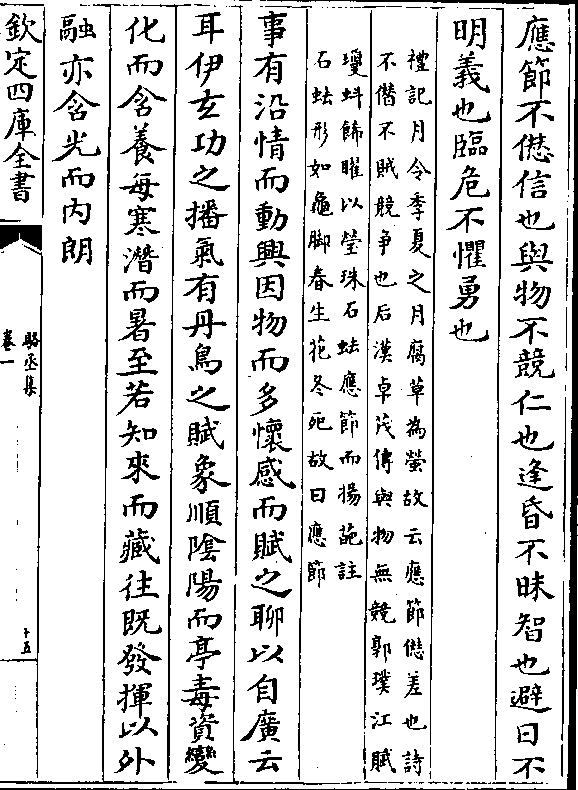 應節不愆信也與物不競仁也逢昏不昧智也避日不
明義也臨危不懼勇也
禮記月令季夏之月腐草為螢故云應節愆差也詩
不僭不賊競爭也后漢卓茂傳與物無競郭璞江賦
瓊蚌晞曜以瑩珠石蚨應節而揚葩註
石蚨形如龜脚春生花冬死故曰應節
事有沿情而動興因物而多懷感而賦之聊以自廣云
耳伊玄功之播氣有丹鳥之賦象順陰陽而亭毒資變
化而含養每寒潛而暑至若知來而藏往既發揮以外
融亦含光而內朗
欽定四庫全書
駱丞集
卷一
十五